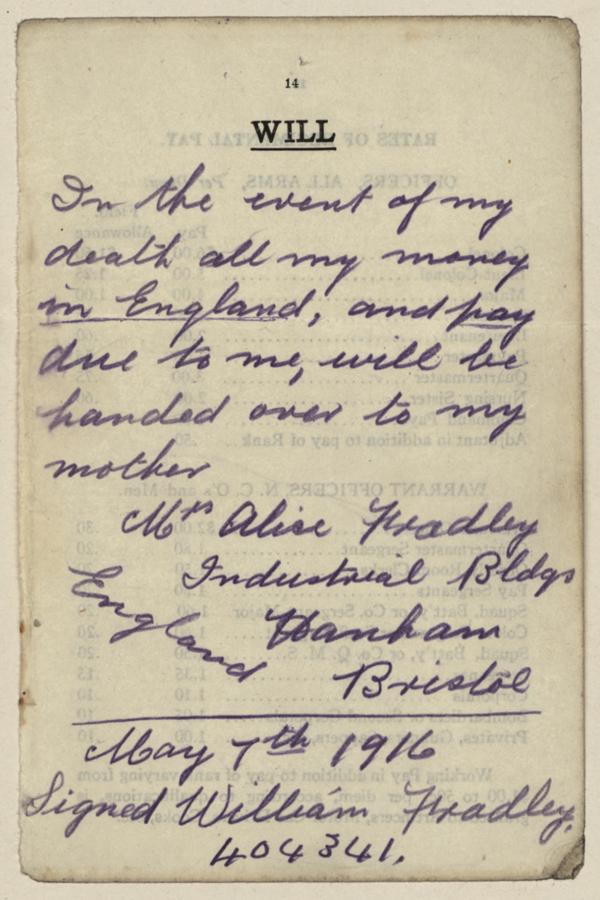 14
WILL
In the event of my
death all my money
in England, and pay
due to me, will be
handed over to my
mother
Mrs Alice Fradley
Industrial Bldgs
Hanham
England
Bristol
May 7th 1916
Signed William Fradley,
404341.